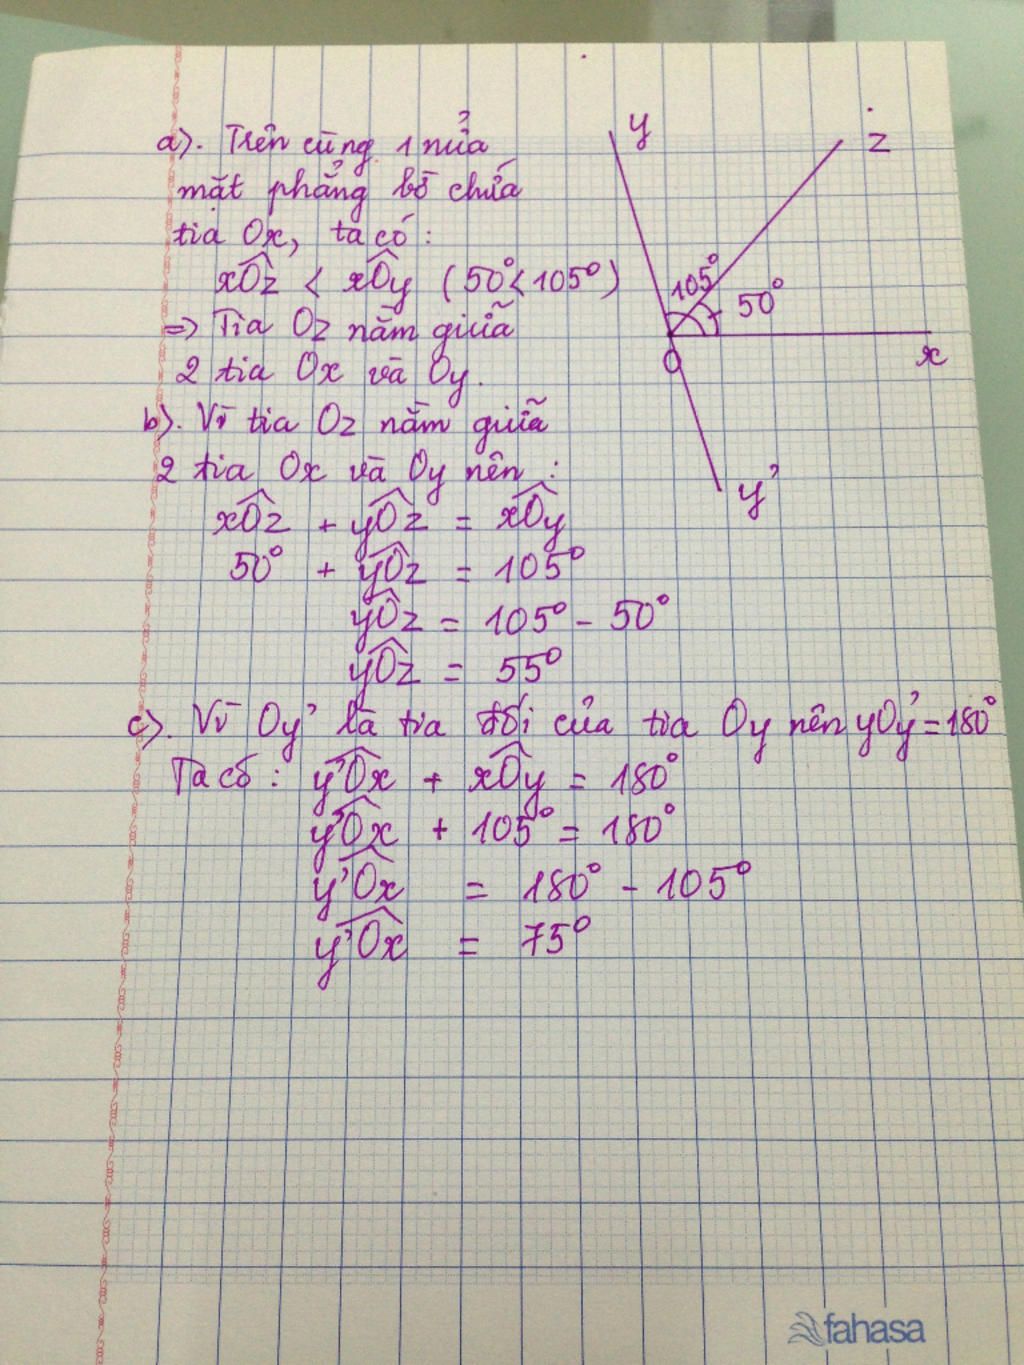 a). Trên cùng 1 nửa
mặt phẳng bờ chứa
tia Ox, ta có:
xOz < xOy (50° < 105°)
=> Tia Oz nằm giữa
2 tia Ox và Oy.
b). Vì tia Oz nằm giữa
2 tia Ox và Oy nên:
xOz + yOz = xOy
50° + yOz = 105°
yOz = 105° - 50°
yOz = 55°
c). Vì Oy' là tia đối của tia Oy nên yOy' = 180°
Ta có: y'Ox + xOy = 180°
y'Ox + 105° = 180°
y'Ox = 180° - 105°
y'Ox = 75°
y
z
105°
50°
O
x
y'
fahasa